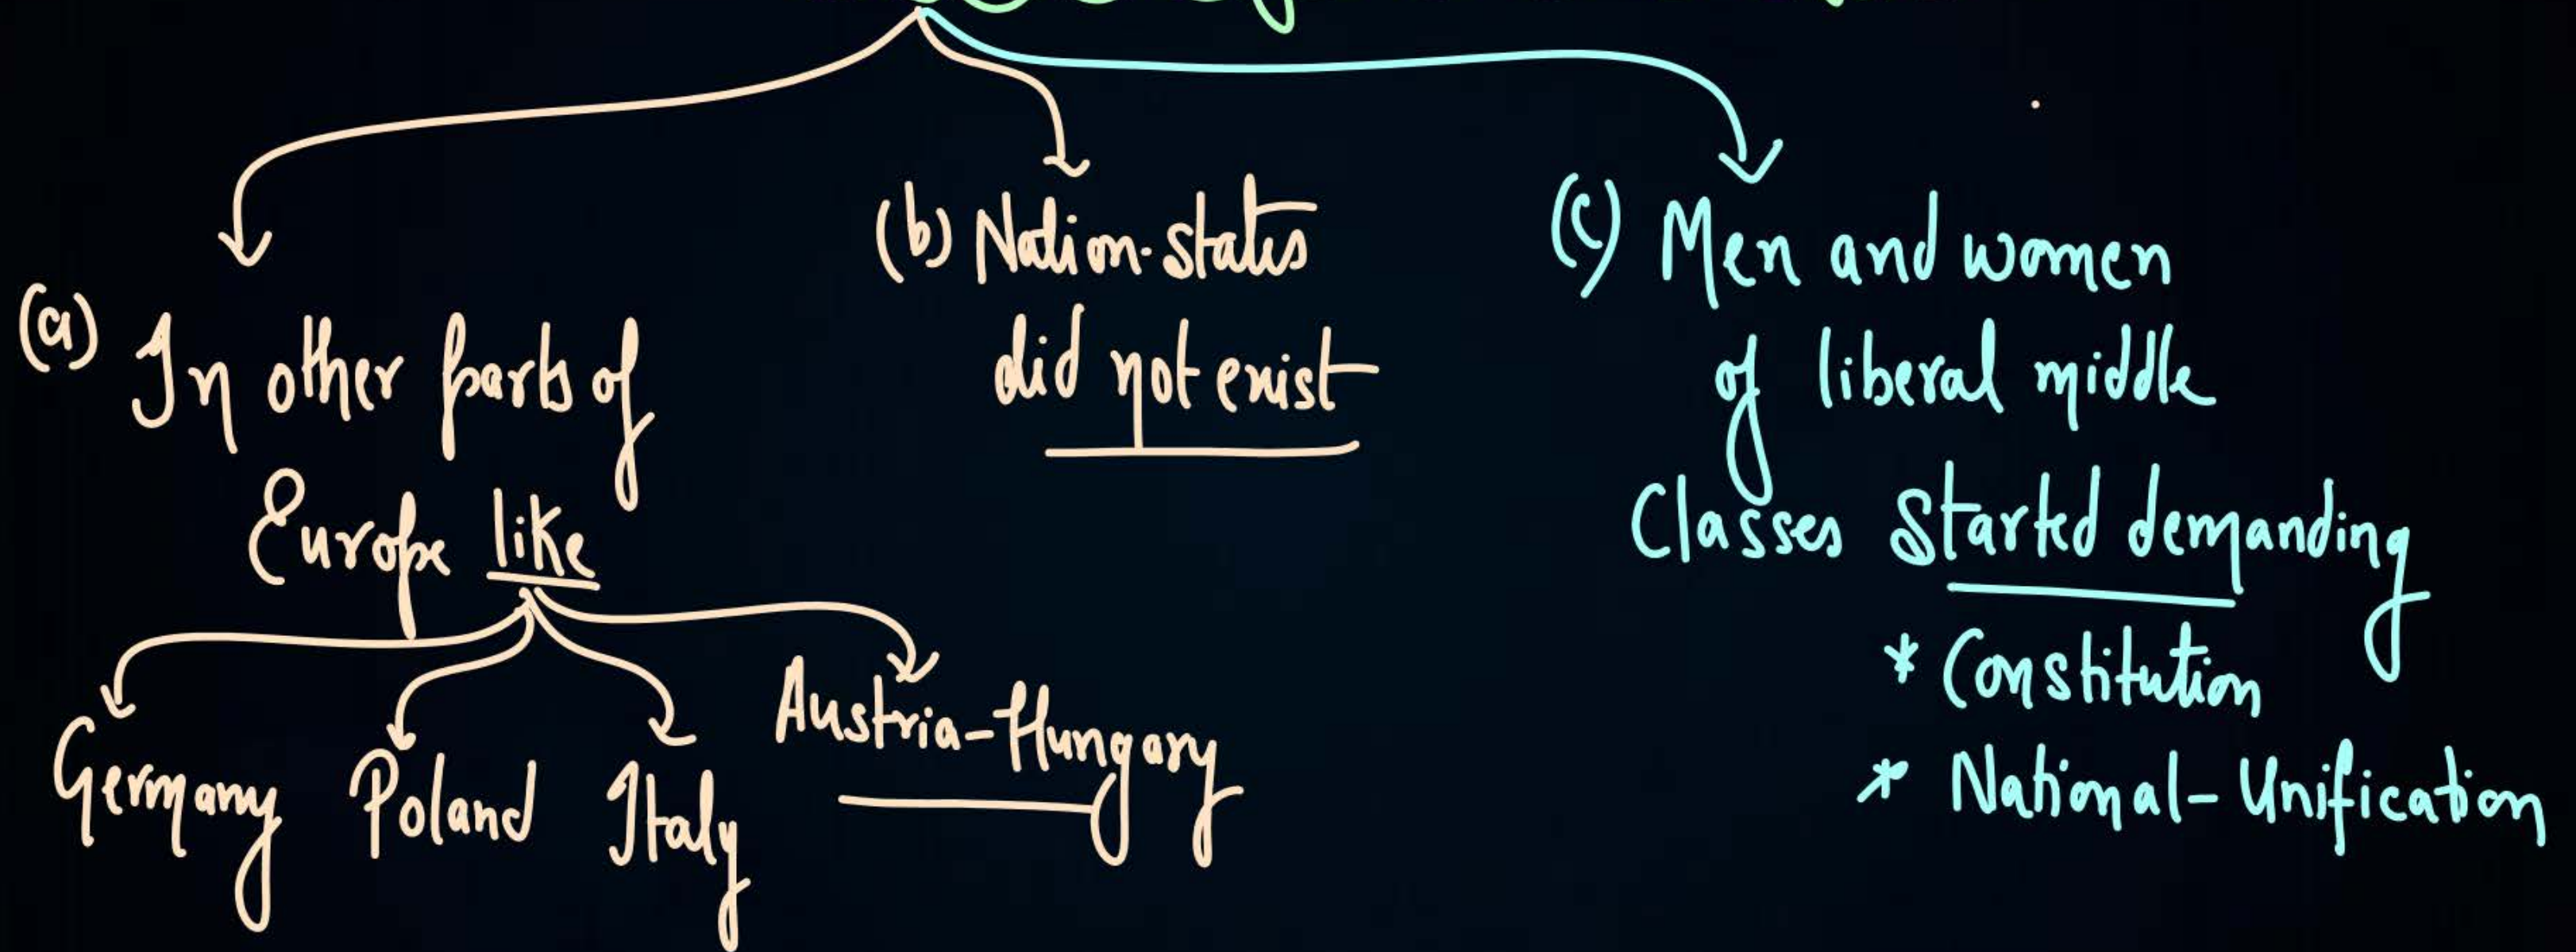 (a) In other parts of
Europe like
Germany Poland Italy Austria-Hungary
(b) Nation-states
did not exist
(c) Men and women
of liberal middle
Classes started demanding
* Constitution
* National-Unification